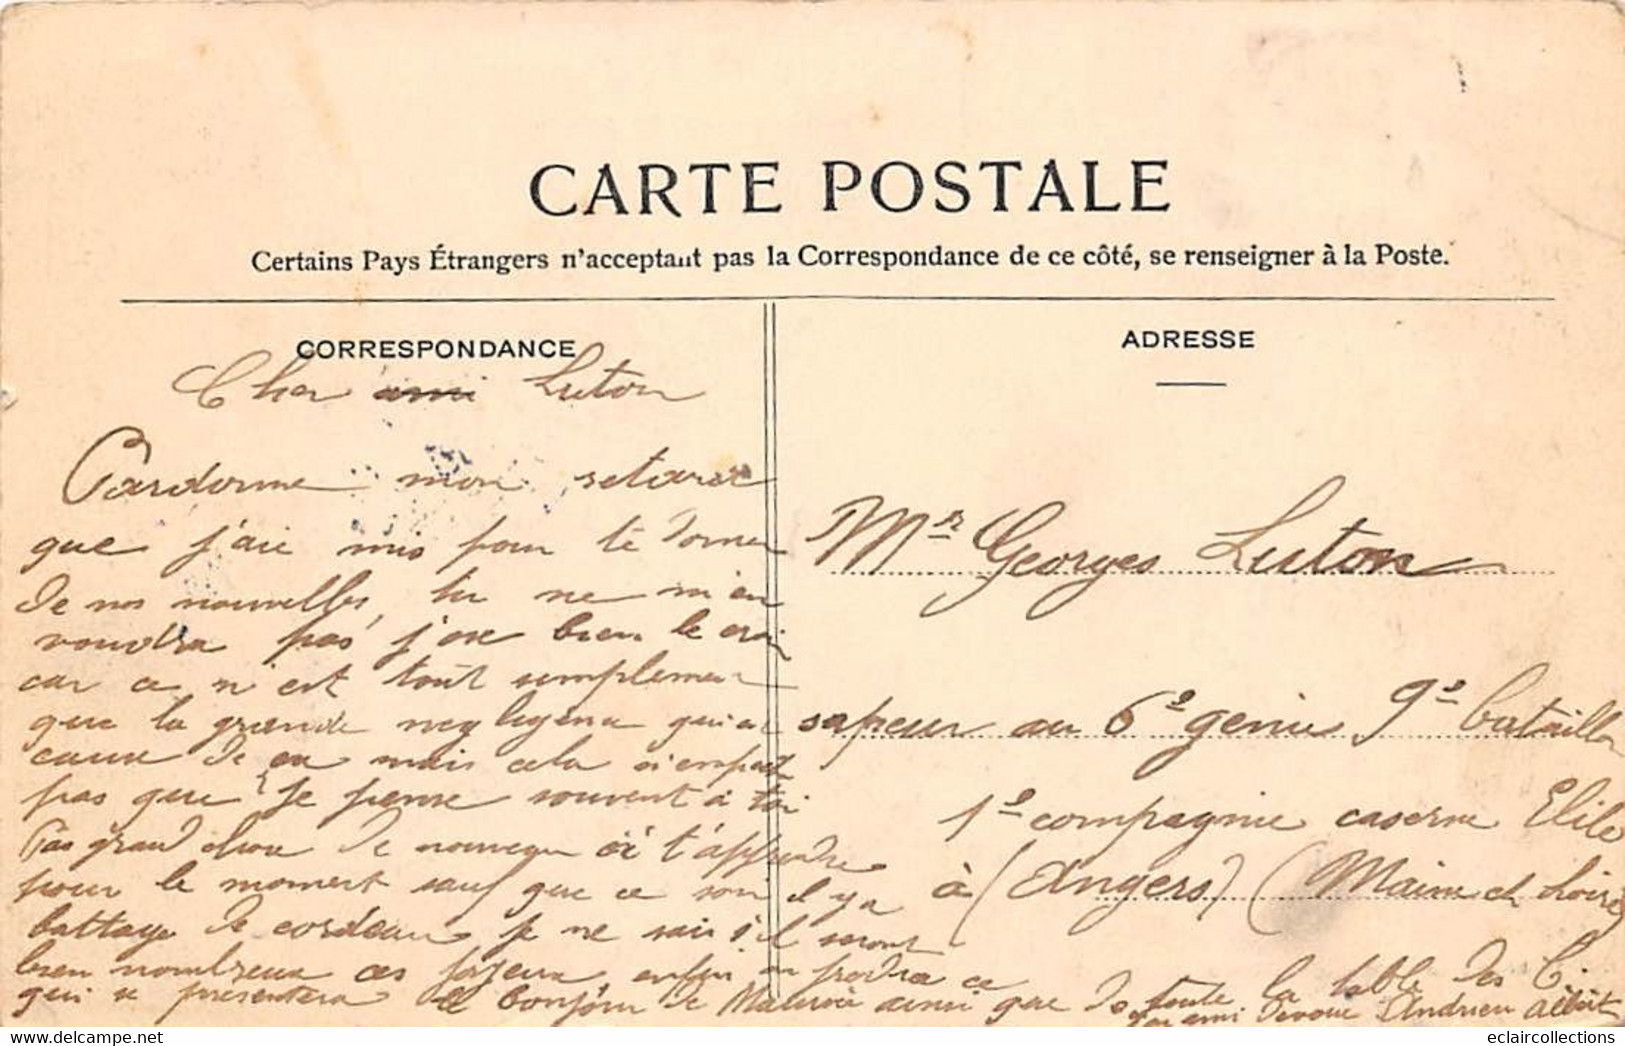 CARTE POSTALE
Certains Pays Étrangers n'acceptant pas la Correspondance de ce côté, se renseigner à la Poste.
CORRESPONDANCE
Cher ami Luton
Pardonne mon retard
que j'aie mis pour te donner
de nos nouvelles, tu ne m'en
voudra pas j'ose bien le croi
car ce n'est tout simplement
que la grande negligence qui a
cause de ça mais cela n'empeche
pas que je pense souvent à toi
Pas grand chose de nouveau à t'apprendre
pour le moment sauf que ce soir il y a
battage de cordeau je ne sais s'il seront
bien nombreux ces enfin on prodra ce
qui se presentera le bonjour de ainsi que de toute la table des C.
ton ami devoué Andrieu Albert
ADRESSE
Mr Georges Luton
sapeur au 6e genie 9e bataillon
1e compagnie caserne Eblé
à (Angers) (Maine et Loire)
www.delcampe.net
eclaircollections